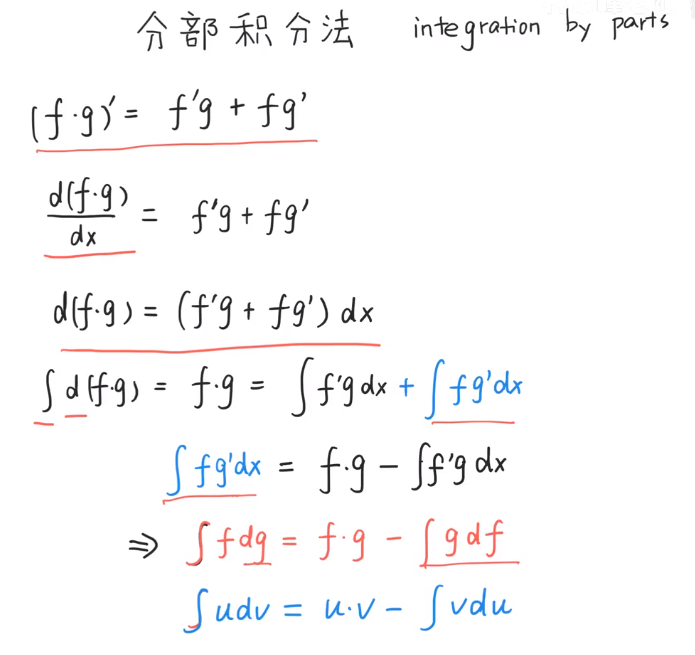 分部积分法 integration by parts
(f·g)′ = f′g + fg′
d(f·g)/dx = f′g + fg′
d(f·g) = (f′g + fg′) dx
∫ d(f·g) = f·g = ∫ f′g dx + ∫ fg′dx
∫ fg′dx = f·g − ∫f′g dx
⇒ ∫ f dg = f·g − ∫ g df
∫ udv = u·v − ∫ vdu